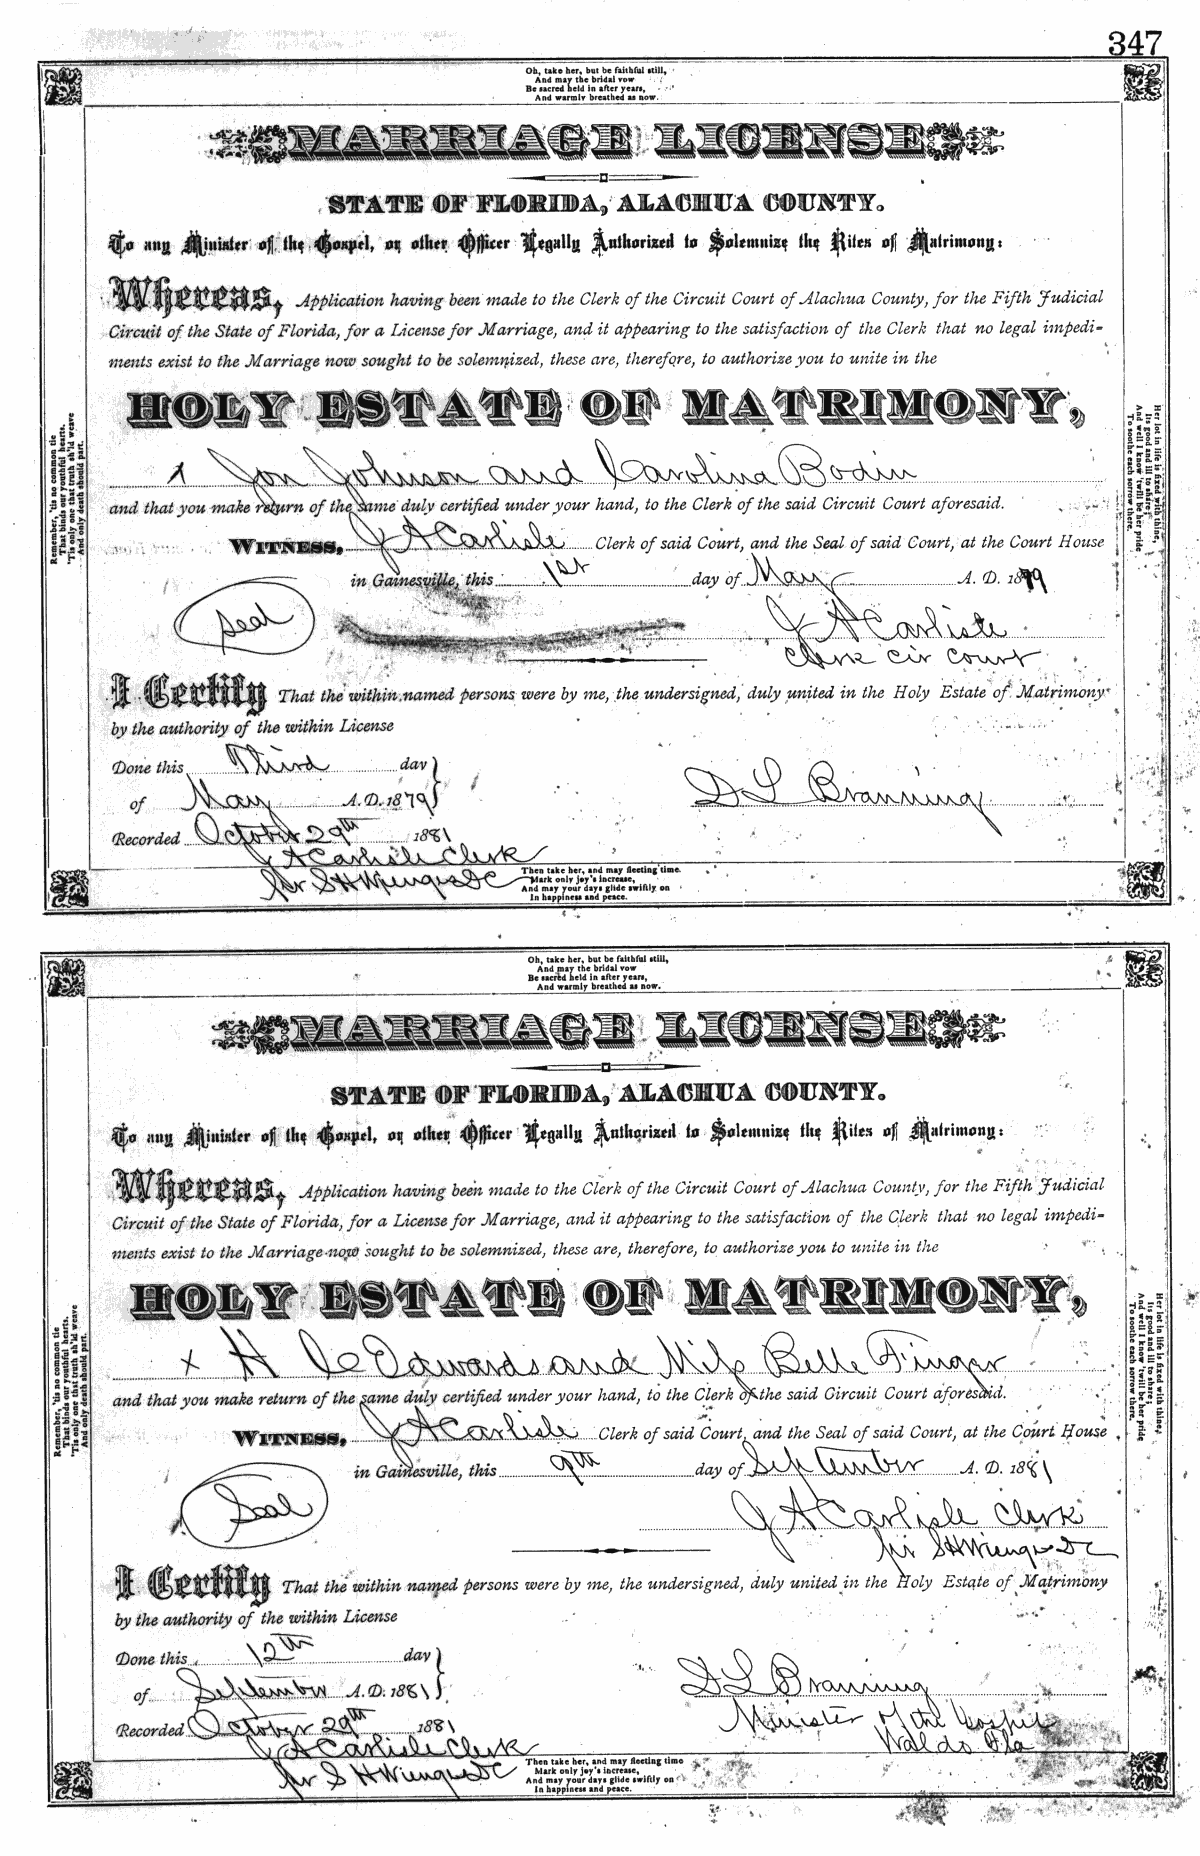 347
Oh, take her, but be faithful still,
And may the bridal vow
Be sacred held in after years,
And warmly breathed as now.
MARRIAGE LICENSE
STATE OF FLORIDA, ALACHUA COUNTY.
To any Minister of the Gospel, or other Officer Legally Authorized to Solemnize the Rites of Matrimony:
Whereas, Application having been made to the Clerk of the Circuit Court of Alachua County, for the Fifth Judicial
Circuit of the State of Florida, for a License for Marriage, and it appearing to the satisfaction of the Clerk that no legal impedi-
ments exist to the Marriage now sought to be solemnized, these are, therefore, to authorize you to unite in the
HOLY ESTATE OF MATRIMONY,
x Jon Johnson and Carolina Bodin
and that you make return of the same duly certified under your hand, to the Clerk of the said Circuit Court aforesaid.
WITNESS, J A Carlisle Clerk of said Court, and the Seal of said Court, at the Court House
in Gainesville, this 1st day of May A. D. 1879
Seal
J A Carlisle
Clerk Cir Court
I Certify That the within named persons were by me, the undersigned, duly united in the Holy Estate of Matrimony
by the authority of the within License
Done this Third day
of May A. D. 1879
D L Branning
Recorded October 29th 1881
J A Carlisle Clerk
per S H Wienges DC
Then take her, and may fleeting time
Mark only joy's increase,
And may your days glide swiftly on
In happiness and peace.
Remember, 'tis no common tie
That binds our youthful hearts,
'Tis only one that truth sh'ld weave
And only death should part.
Her lot in life is fixed with thine,
Its good and ill to share;
And well I know 'twill be her pride
To soothe each sorrow there.
Oh, take her, but be faithful still,
And may the bridal vow
Be sacred held in after years,
And warmly breathed as now.
MARRIAGE LICENSE
STATE OF FLORIDA, ALACHUA COUNTY.
To any Minister of the Gospel, or other Officer Legally Authorized to Solemnize the Rites of Matrimony:
Whereas, Application having been made to the Clerk of the Circuit Court of Alachua County, for the Fifth Judicial
Circuit of the State of Florida, for a License for Marriage, and it appearing to the satisfaction of the Clerk that no legal impedi-
ments exist to the Marriage now sought to be solemnized, these are, therefore, to authorize you to unite in the
HOLY ESTATE OF MATRIMONY,
x H C Edwards and Miss Belle Finger
and that you make return of the same duly certified under your hand, to the Clerk of the said Circuit Court aforesaid.
WITNESS, J A Carlisle Clerk of said Court, and the Seal of said Court, at the Court House
in Gainesville, this 9th day of September A. D. 1881
Seal
J A Carlisle Clerk
per S H Wienges DC
I Certify That the within named persons were by me, the undersigned, duly united in the Holy Estate of Matrimony
by the authority of the within License
Done this 12th day
of September A. D. 1881
D L Branning
Minister of the Gospel
Waldo Fla
Recorded October 29th 1881
J A Carlisle Clerk
per S H Wienges DC
Then take her, and may fleeting time
Mark only joy's increase,
And may your days glide swiftly on
In happiness and peace.
Remember, 'tis no common tie
That binds our youthful hearts,
'Tis only one that truth sh'ld weave
And only death should part.
Her lot in life is fixed with thine,
Its good and ill to share;
And well I know 'twill be her pride
To soothe each sorrow there.